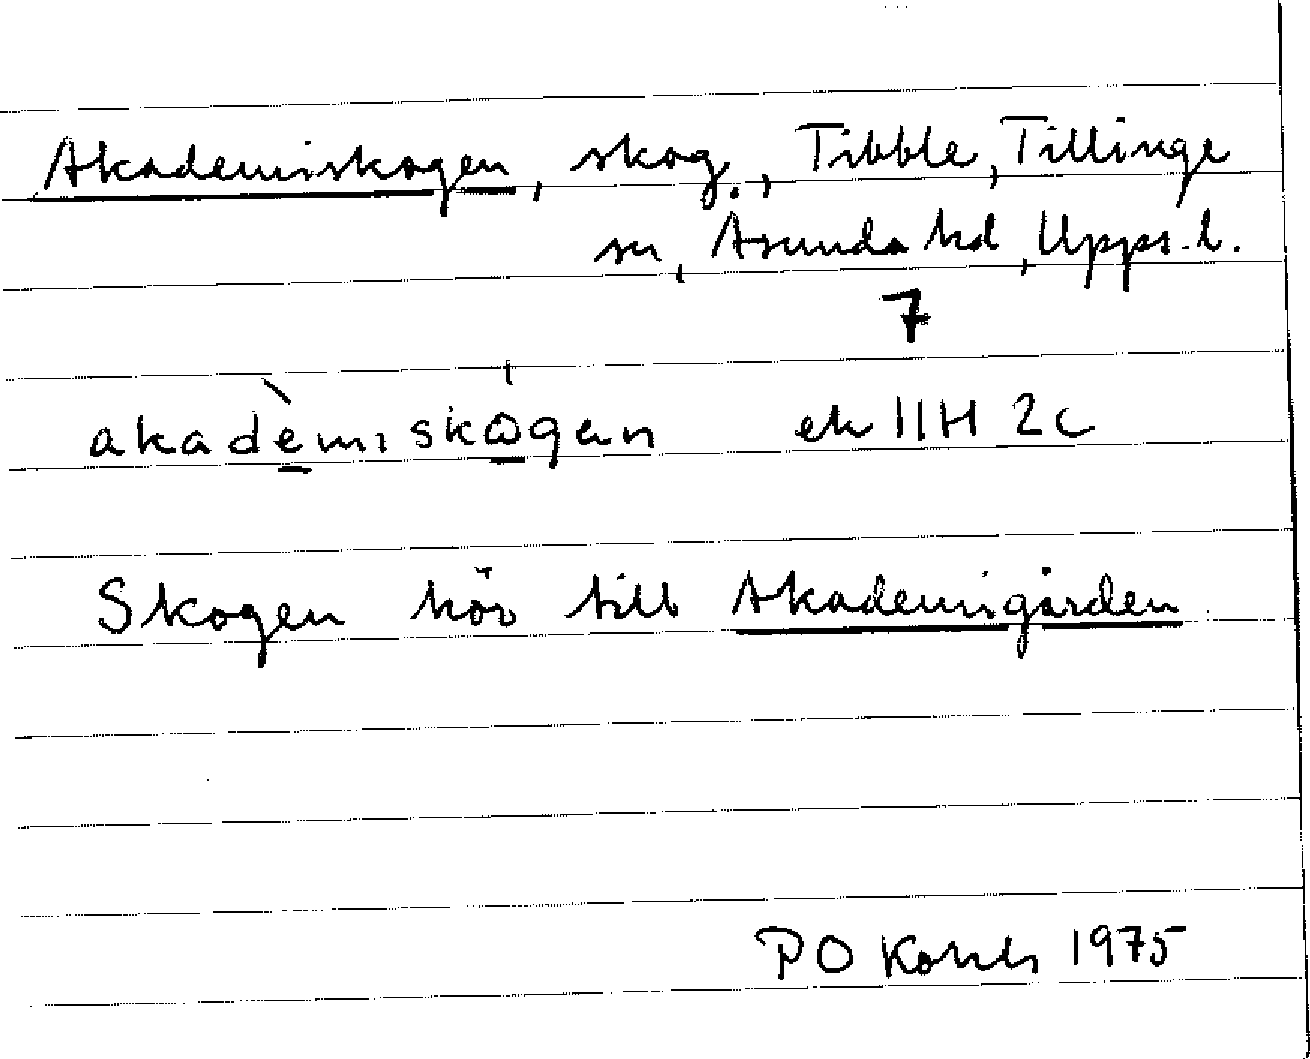 Akademiskogen, skog., Tibble, Tillinge
sn, Asunda hd, Upps. l.
7
akadèmiskògen ek 11H 2c
Skogen hör till Akademigården.
PO 1975